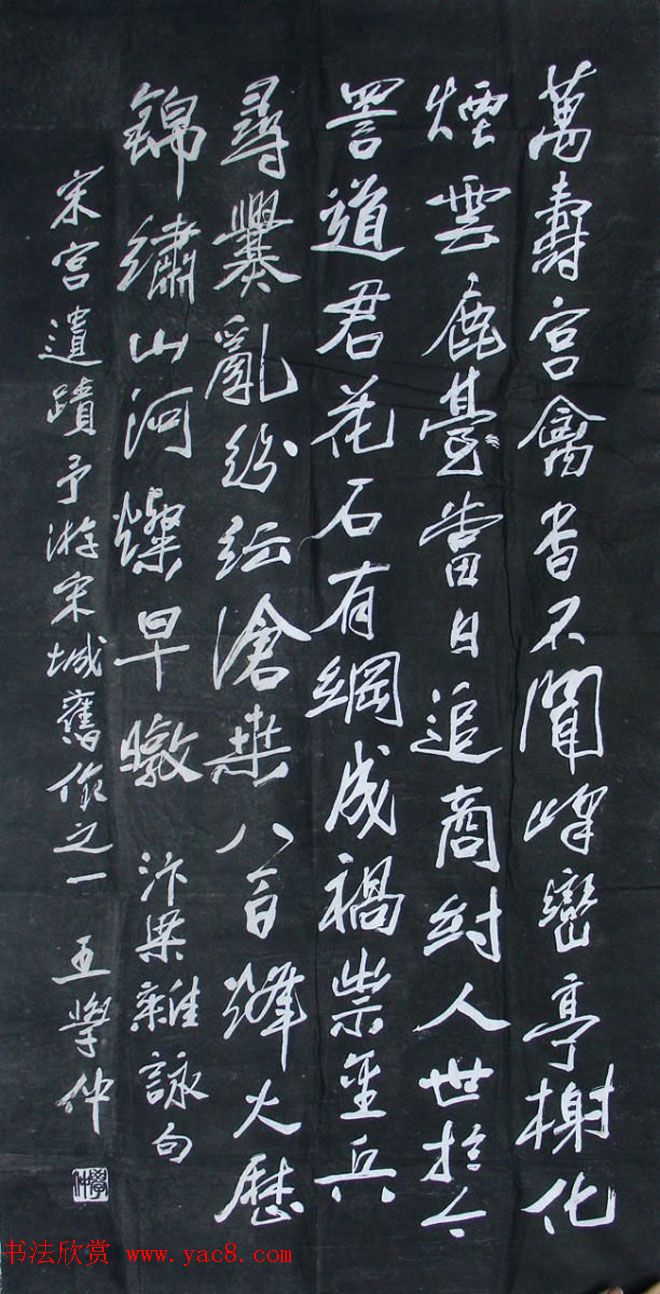 萬壽宮禽杳不聞峰巒亭榭化
煙雲鹿臺當日追商紂人世於今
詈道君花石有綱成禍祟金兵
尋釁亂紛紜滄桑八百烽火歷
錦繡山河燦早暾 汴梁雜詠句
宋宮遺蹟予游宋城舊作之一 王學仲
學仲
书法欣赏 www.yac8.com